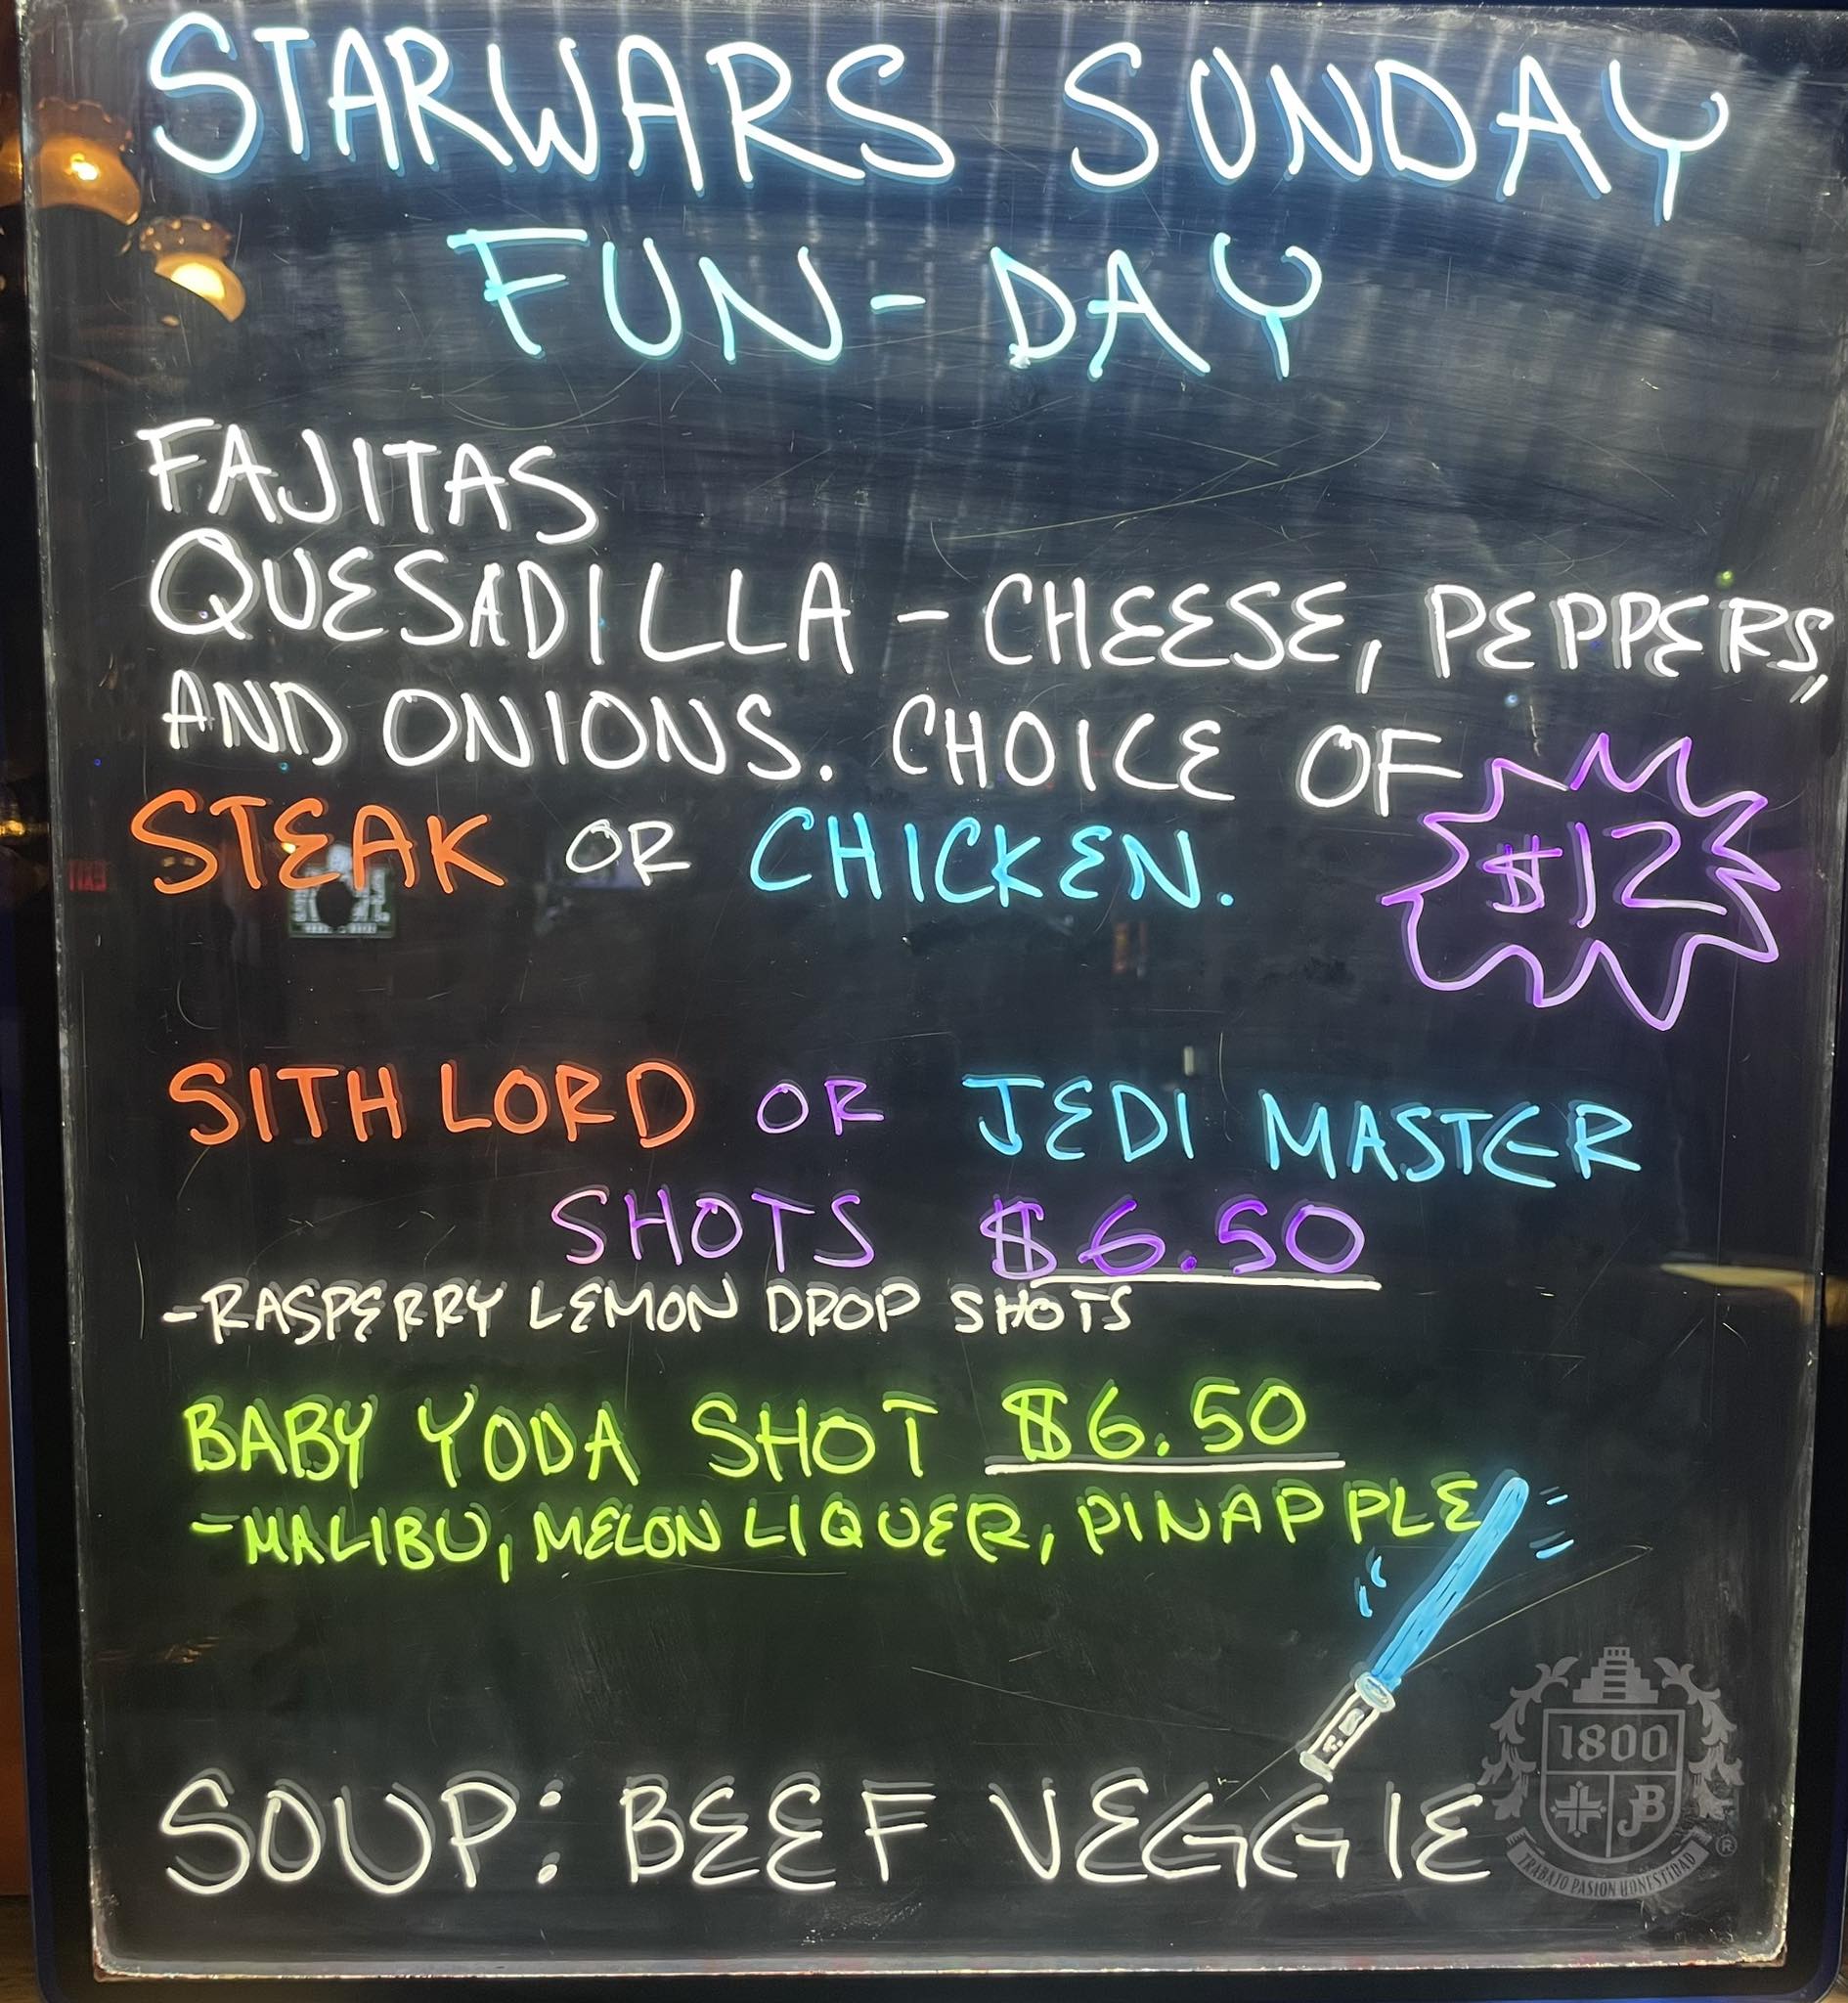 STARWARS SUNDAY
FUN-DAY
FAJITAS
QUESADILLA - CHEESE, PEPPERS,
AND ONIONS. CHOICE OF
STEAK OR CHICKEN.
$12
SITH LORD OR JEDI MASTER
SHOTS $6.50
-RASPERRY LEMON DROP SHOTS
BABY YODA SHOT $6.50
-MALIBU, MELON LIQUER, PINAPPLE
SOUP: BEEF VEGGIE
1800
JB
TRABAJO PASION HONESTIDAD
®